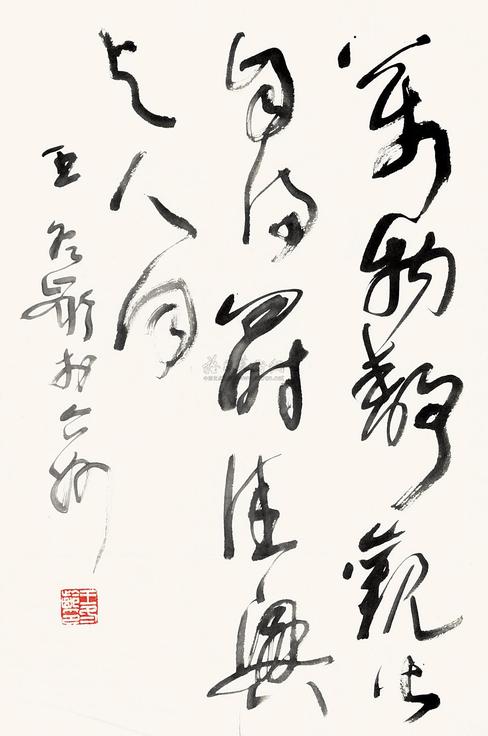 萬物靜觀皆
自得四時佳興
与人同
王冬齡